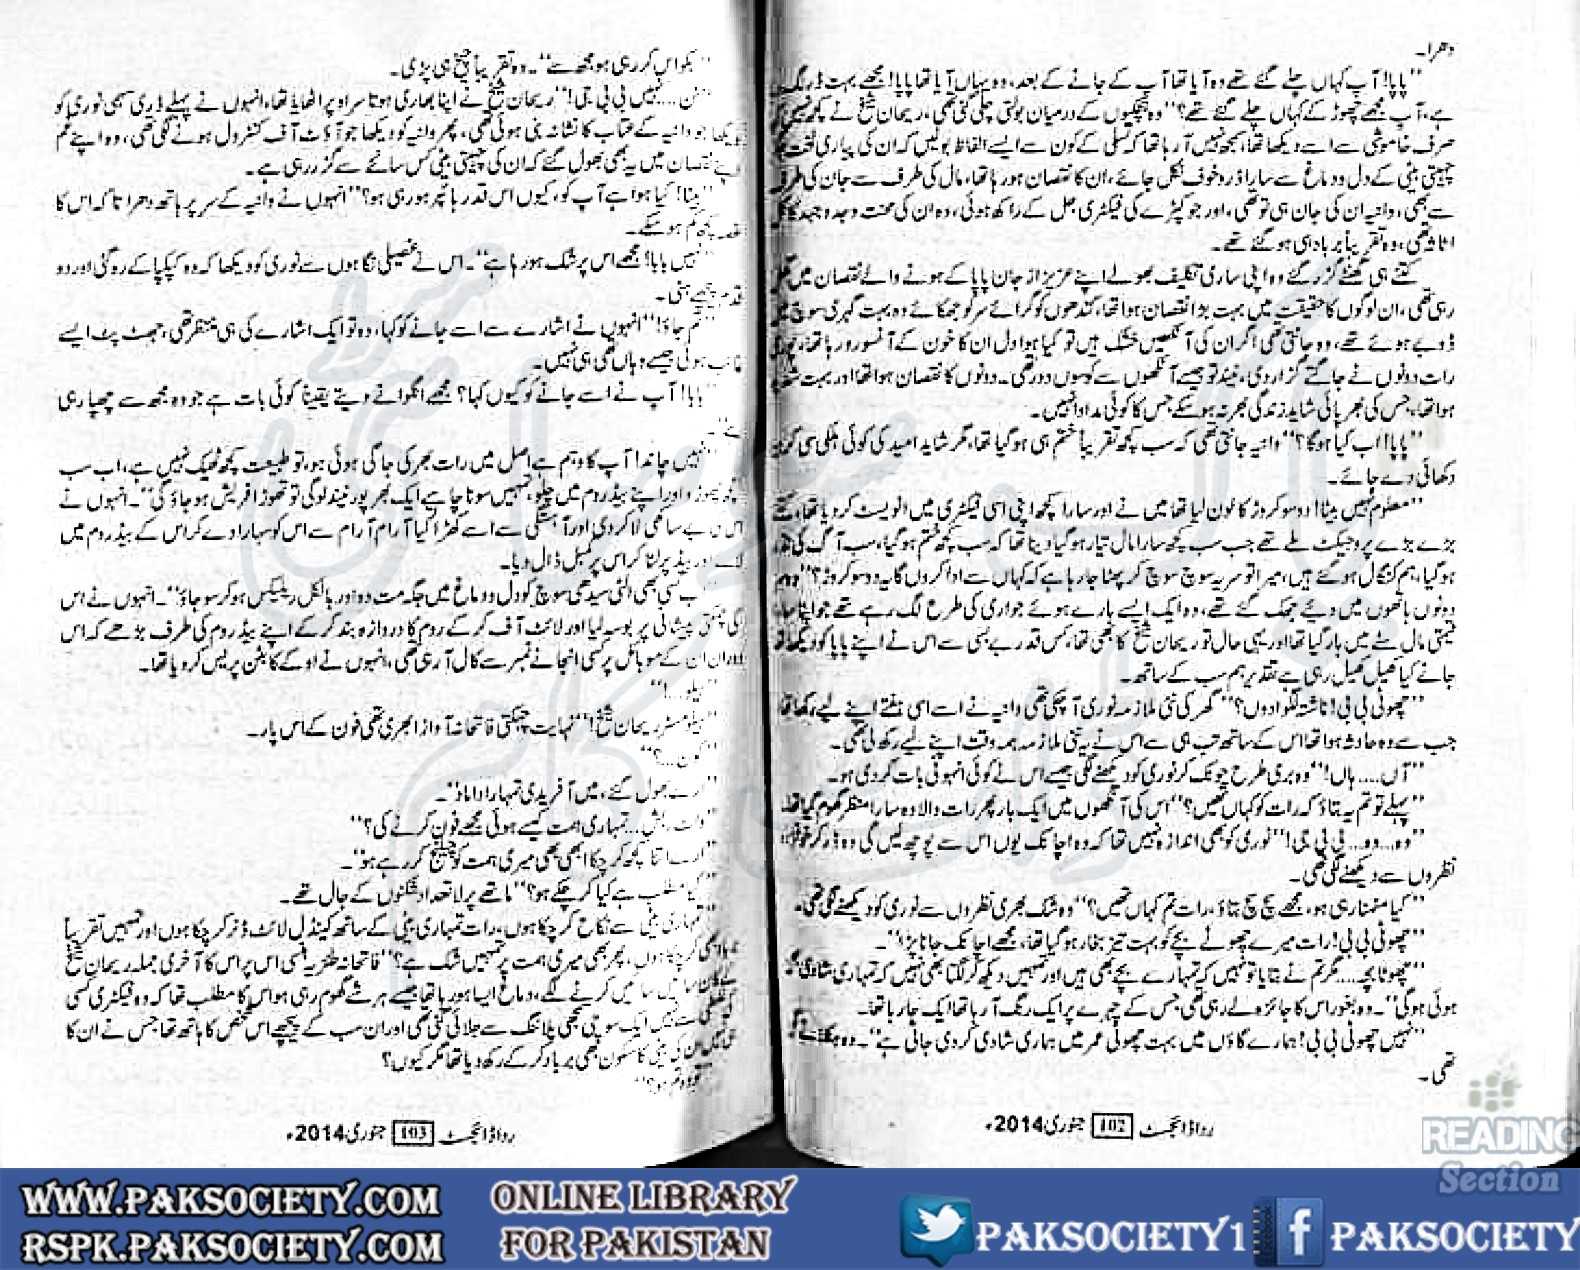 دھرا۔
"پاپا! آپ کہاں چلے گئے تھے وہ آیا تھا آپ کے جانے کے بعد، وہ یہاں آیا تھا پاپا! مجھے بہت ڈر لگ
ہے، آپ مجھے چھوڑ کے کہاں چلے گئے تھے؟" وہ ہچکیوں کے درمیان بولتی چلی گئی تھی، ریحان شیخ نے کچھ نہیں
صرف خاموشی سے اسے دیکھا تھا، سمجھ نہیں آ رہا تھا کہ تسلی کے کون سے ایسے الفاظ بولیں کہ ان کی پیاری
چہیتی بیٹی کے دل و دماغ سے سارا ڈر و خوف نکل جائے، ان کا نقصان ہو رہا تھا، مال کی طرف سے جان کی طرف
سے بھی، وانیہ ان کی جان ہی تو تھی، اور جو کپڑے کی فیکٹری جل کے راکھ ہوئی، وہ ان کی محنت و جدوجہد کا کل
اثاثہ تھی، وہ تقریباً برباد ہی ہو گئے تھے۔
کتنے ہی گھنٹے گزر گئے وہ اپنی ساری تکلیف بھولے اپنے عزیز از جان پاپا کے ہونے والے نقصان میں
رہی تھی، ان لوگوں کا حقیقت میں بہت بڑا نقصان ہوا تھا، کندھوں کو گرائے سر کو جھکائے وہ بہت گہری سوچ میں
ڈوبے ہوئے تھے، وہ جانتی تھی اگر ان کی آنکھیں خشک ہیں تو کیا ہوا دل ان کا خون کے آنسو رو رہا تھا، پوری
رات دونوں نے جاگتے گزار دی، نیند تو جیسے آنکھوں سے کوسوں دور تھی۔ دونوں کا نقصان ہوا تھا اور بہت
ہوا تھا، جس کی بھرپائی شاید زندگی بھر نہ ہو سکے جس کا کوئی مداوا نہیں۔
"پاپا! اب کیا ہوگا؟" وانیہ جانتی تھی کہ سب کچھ تقریباً ختم ہی ہو گیا تھا، مگر شاید امید کی کوئی ہلکی سی کرن
دکھائی دے جائے۔
"معلوم نہیں بیٹا! دو سو کروڑ کا لون لیا تھا میں نے اور سارا کچھ اپنی اسی فیکٹری میں انویسٹ کر دیا تھا،
بڑے بڑے پروجیکٹ ملے تھے جب سب کچھ سارا مال تیار ہو گیا دینا تھا کہ سب کچھ ختم ہو گیا، سب آگ کی نذر
ہو گیا، ہم کنگال ہو گئے ہیں، میرا تو سر یہ سوچ سوچ کر پھٹا جا رہا ہے کہ کہاں سے ادا کروں گا یہ دو سو کروڑ؟" وہ سر
دونوں ہاتھوں میں دیئے جھک گئے تھے، وہ ایک ایسے ہارے ہوئے جواری کی طرح لگ رہے تھے جو اپنا سارا
قیمتی مال سٹے میں ہار گیا تھا اور یہی حال تو ریحان شیخ کا بھی تھا، کس قدر بے بسی سے اس نے اپنے پاپا کو دیکھا تھا
جانے کیا کھیل کھیل رہی ہے تقدیر ہم سب کے ساتھ۔
"چھوٹی بی بی! ناشتہ لگوا دوں؟" گھر کی نئی ملازمہ نوری آ چکی تھی وانیہ نے اسے اسی ہفتے اپنے لیے رکھا تھا
جب سے وہ حادثہ ہوا تھا اس کے ساتھ تب ہی سے اس نے یہ نئی ملازمہ ہمہ وقت اپنے لیے رکھ لی تھی۔
"آں.... ہاں!" وہ بری طرح چونک کر نوری کو دیکھنے لگی جیسے اس نے کوئی انہونی بات کر دی ہو۔
"پہلے تو تم یہ بتاؤ کہ رات کو کہاں تھیں؟" اس کی آنکھوں میں ایک بار پھر رات والا وہ سارا منظر گھوم گیا تھا۔
"وہ... وہ... بی بی جی!" نوری کو بھی اندازہ نہیں تھا کہ وہ اچانک یوں اس سے پوچھ لیں گی وہ ڈر کر خوفزدہ
نظروں سے دیکھنے لگی تھی۔
"کیا منمنا رہی ہو، مجھے سچ سچ بتاؤ، رات تم کہاں تھیں؟" وہ شک بھری نظروں سے نوری کو دیکھنے لگی تھی۔
"چھوٹی بی بی! رات میرے چھوٹے بچے کو بہت تیز بخار ہو گیا تھا، مجھے اچانک جانا پڑا"۔
"چھوٹا بچہ.... مگر تم نے بتایا تو نہیں کہ تمہارے بچے بھی ہیں اور تمہیں دیکھ کر لگتا بھی نہیں کہ تمہاری شادی
ہوئی ہوگی"۔ وہ بغور اس کا جائزہ لے رہی تھی جس کے چہرے پر ایک رنگ آ رہا تھا ایک جا رہا تھا۔
"نہیں چھوٹی بی بی! ہمارے گاؤں میں بہت چھوٹی عمر میں ہماری شادی کر دی جاتی ہے"۔ وہ ہکلانے
تھی۔
رداڈائجسٹ 102 جنوری 2014ء
"بکواس کر رہی ہو مجھ سے"۔ وہ تقریباً چیخ ہی پڑی۔
"نن.... نہیں بی بی جی!" ریحان شیخ نے اپنا بھاری ہوتا سر اوپر اٹھایا تھا، انہوں نے پہلے ڈری سہمی نوری کو
دیکھا جو وانیہ کے عتاب کا نشانہ بنی ہوئی تھی، پھر وانیہ کو دیکھا جو آؤٹ آف کنٹرول ہونے لگی تھی، وہ اپنے غم
نقصان میں یہ بھی بھول گئے کہ ان کی چہیتی بیٹی کس سانحے سے گزر رہی ہے۔
"بیٹا! کیا ہوا ہے آپ کو، کیوں اس قدر ہائپر ہو رہی ہو؟" انہوں نے وانیہ کے سر پر ہاتھ دھرا تاکہ اس کا
غصہ کم ہو سکے۔
"نہیں بابا! مجھے اس پر شک ہو رہا ہے"۔ اس نے غصیلی نگاہوں سے نوری کو دیکھا کہ وہ کپکپا کے رہ گئی اور دو
قدم پیچھے ہٹی۔
"تم جاؤ!" انہوں نے اشارے سے اسے جانے کو کہا، وہ تو ایک اشارے کی ہی منتظر تھی، جھٹ پٹ ایسے
غائب ہوئی جیسے وہاں تھی ہی نہیں۔
"بابا! آپ نے اسے جانے کو کیوں کہا؟ مجھے اگلوانے دیتے یقیناً کوئی بات ہے جو وہ مجھ سے چھپا رہی
ہے"۔
"نہیں چاندا! آپ کا وہم ہے اصل میں رات بھر کی جاگی ہوئی ہو، تو طبیعت کچھ ٹھیک نہیں ہے، اب سب
کچھ چھوڑو اور اپنے بیڈ روم میں چلو، تمہیں سونا چاہے ایک بھرپور نیند لوگی تو تھوڑا فریش ہو جاؤ گی"۔ انہوں نے
اس کی بے ساکھی لا کر دی اور آہستگی سے اسے کھڑا کیا آرام آرام سے اس کو سہارا دے کر اس کے بیڈ روم میں
لائے اور بیڈ پر لٹا کر اس پر کمبل ڈال دیا۔
"اب کسی بھی الٹی سیدھی سوچ کو دل و دماغ میں جگہ مت دو اور بالکل ریلیکس ہو کر سو جاؤ"۔ انہوں نے اس
کی پیشانی پر بوسہ لیا اور لائٹ آف کر کے روم کا دروازہ بند کر کے اپنے بیڈ روم کی طرف بڑھے کہ اس
دوران ان کے موبائل پر کسی انجانے نمبر سے کال آ رہی تھی، انہوں نے اوکے کا بٹن پریس کر دیا تھا۔
"ہیلو...!"
"ہیلو مسٹر ریحان شیخ!" نہایت چہکتی فاتحانہ آواز ابھری تھی فون کے اس پار۔
"کون...؟"
"ارے بھول گئے، میں آفریدی تمہارا داماد"۔
"شٹ اپ... تمہاری ہمت کیسے ہوئی مجھے فون کرنے کی؟"
"ارے اتنا کچھ کر چکا ابھی بھی میری ہمت کو چیلنج کر رہے ہو"۔
"کیا مطلب ہے کیا کر چکے ہو؟" ماتھے پر لاتعداد شکنوں کے جال تھے۔
"تمہاری بیٹی سے نکاح کر چکا ہوں، رات تمہاری بیٹی کے ساتھ کینڈل لائٹ ڈنر کر چکا ہوں اور تمہیں تقریباً
کر چکا ہوں، پھر بھی میری ہمت پر تمہیں شک ہے؟" فاتحانہ طنزیہ ہنسی اس پر اس کا آخری جملہ ریحان شیخ
سائیں سائیں کرنے لگے، دماغ ایسا ہو رہا تھا جیسے ہر شے گھوم رہی ہو اس کا مطلب تھا کہ وہ فیکٹری کسی
سے نہیں ایک سوچی سمجھی پلاننگ سے جلائی گئی تھی اور ان سب کے پیچھے اس شخص کا ہاتھ تھا جس نے ان کا
ان کی بیٹی کا سکون بھی برباد کر کے رکھ دیا تھا مگر کیوں؟
رداڈائجسٹ 103 جنوری 2014ء
READING
Section
WWW.PAKSOCIETY.COM
RSPK.PAKSOCIETY.COM
ONLINE LIBRARY
FOR PAKISTAN
PAKSOCIETY1
PAKSOCIETY